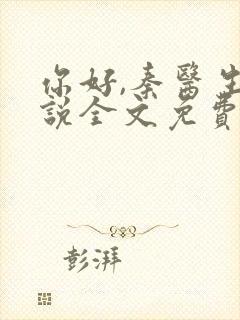 你好,秦醫生
說全文免費
彭湃